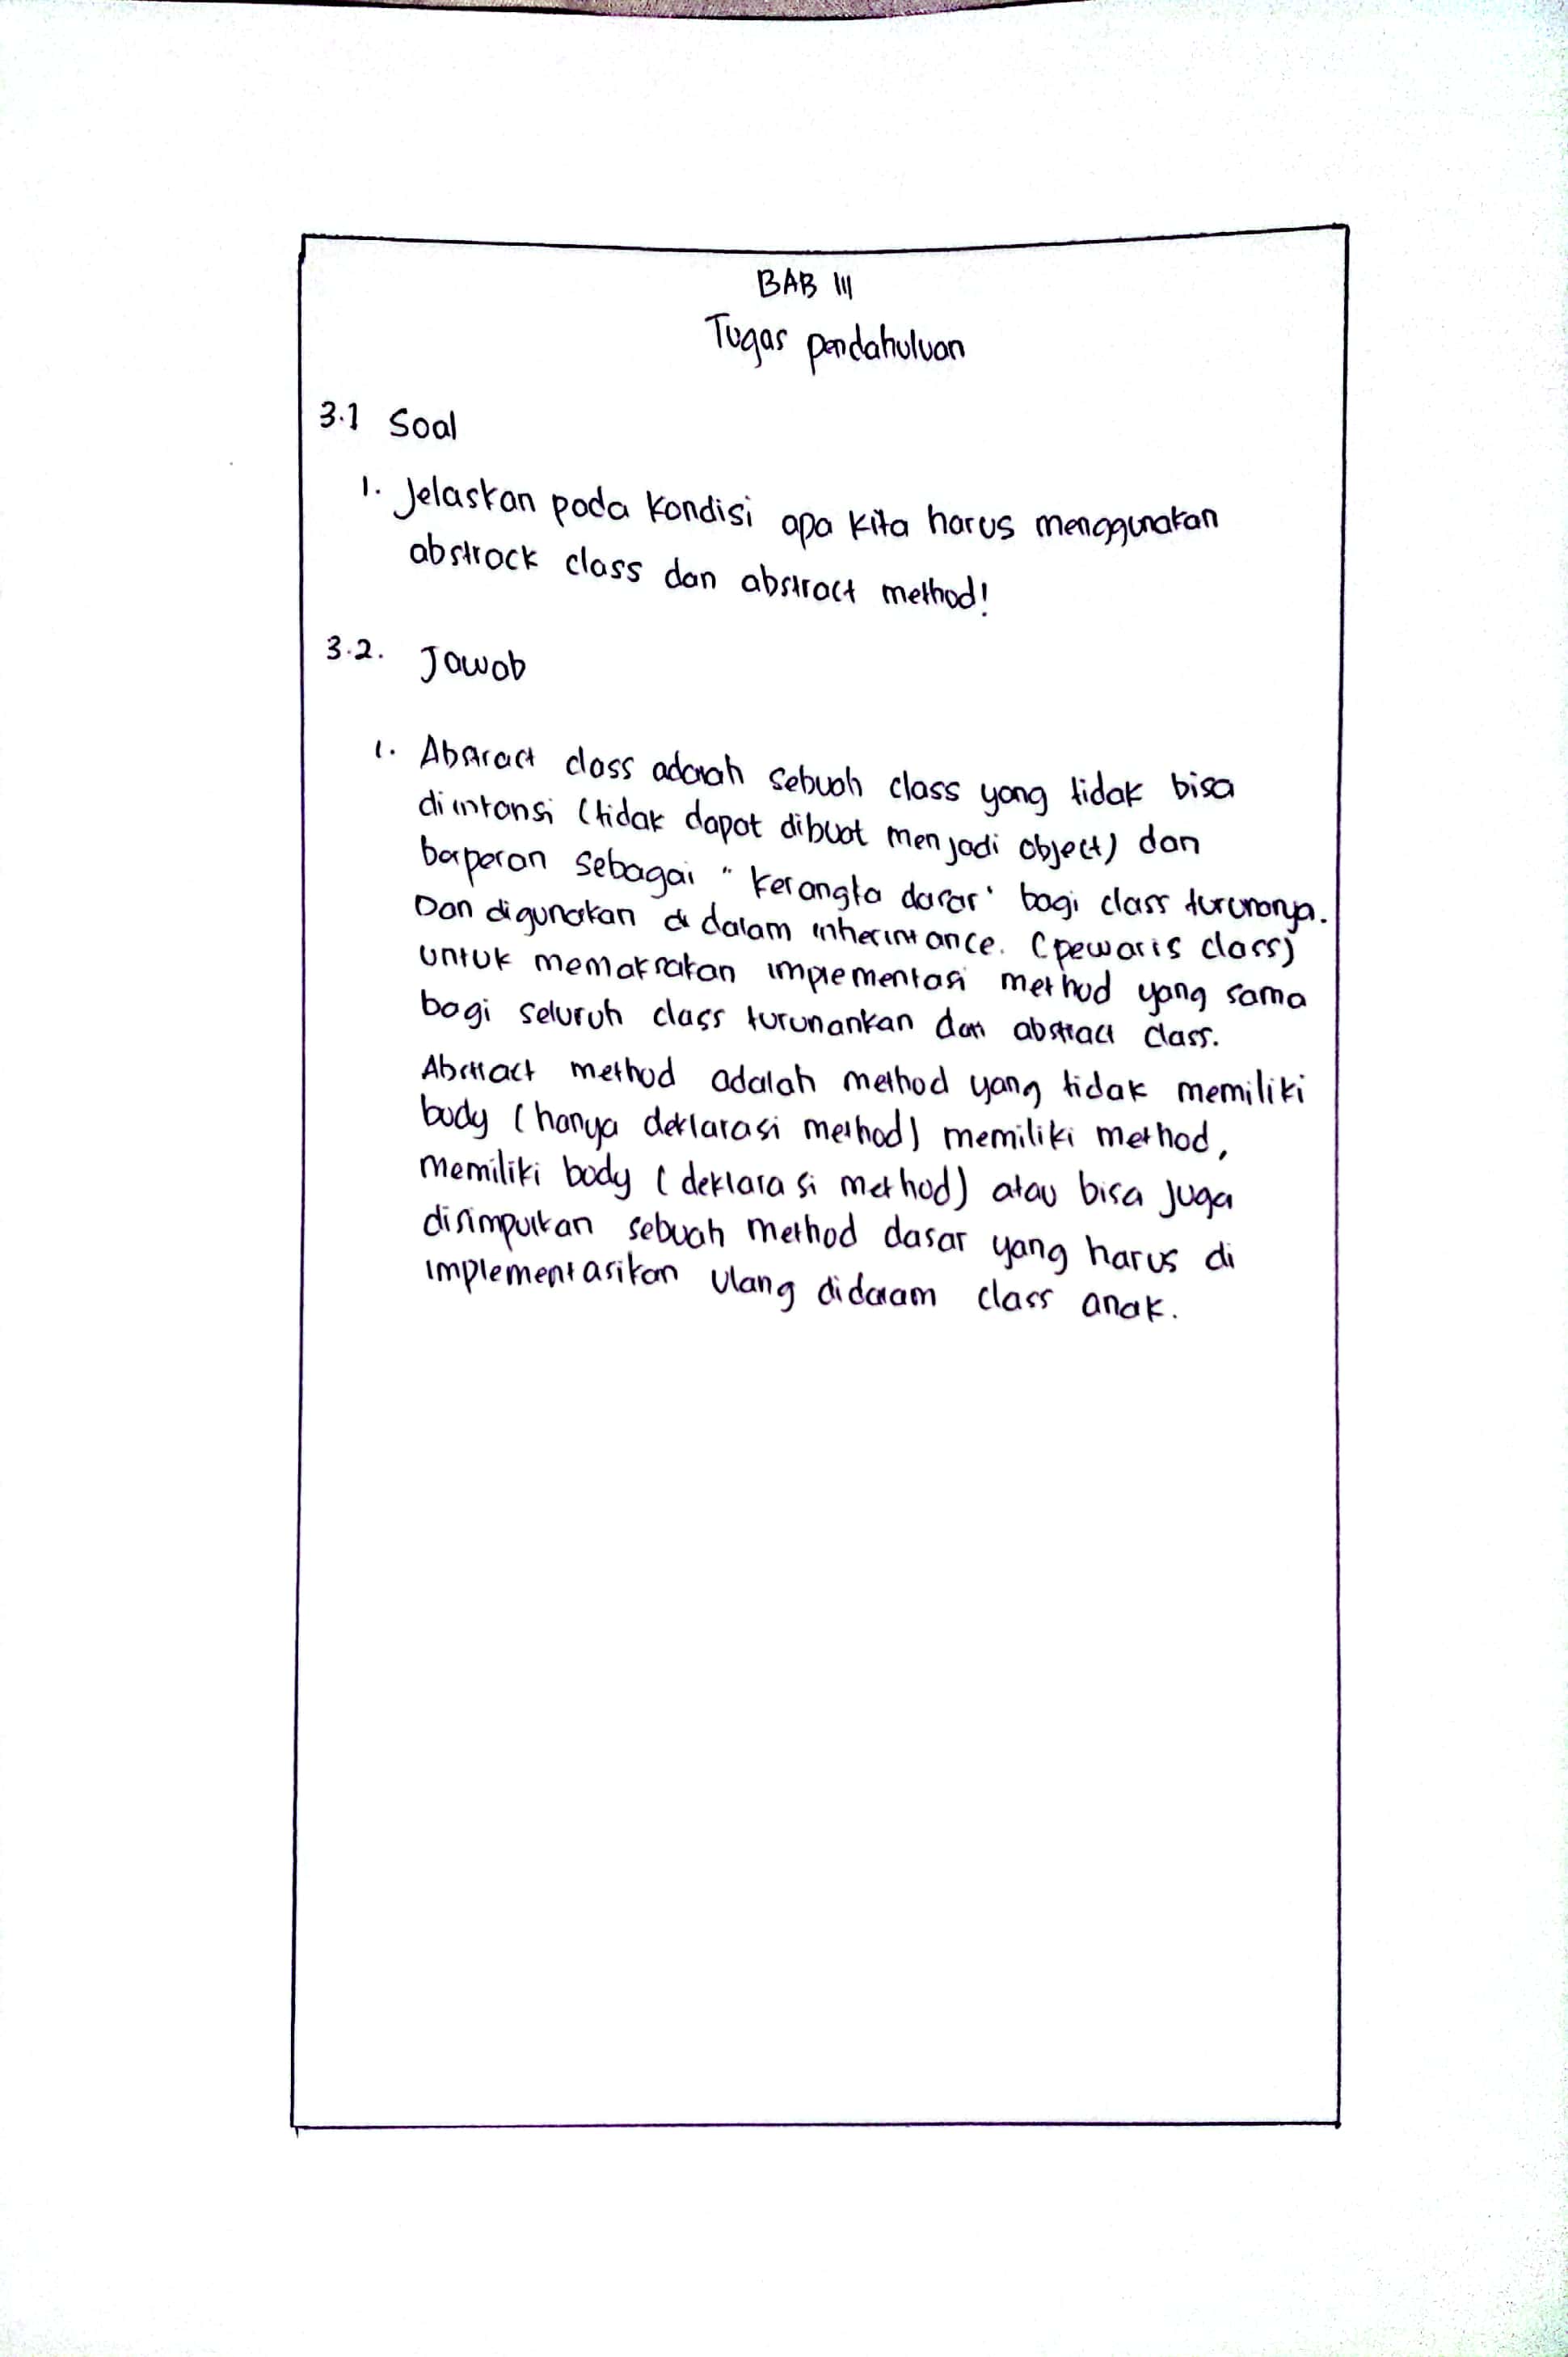 BAB III
Tugas pendahuluan
3.1 Soal
1. Jelaskan pada kondisi apa kita harus menggunakan
abstrack class dan abstract method!
3.2. Jawab
1. Abstract class adalah sebuah class yang tidak bisa
di intansi (tidak dapat dibuat menjadi object) dan
berperan sebagai "kerangka dasar" bagi class turunanya.
Dan digunakan di dalam inherintance. (pewaris class)
untuk memaksakan implementasi method yang sama
bagi seluruh class turunankan dari abstract class.
Abstract method adalah method yang tidak memiliki
body (hanya deklarasi method) memiliki method,
memiliki body (deklarasi method) atau bisa juga
disimpulkan sebuah method dasar yang harus di
implementasikan ulang didalam class anak.